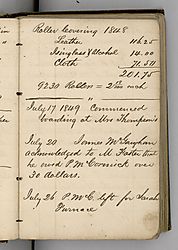 Roller Covering 1848
Leather 116.25
Isinglass & Alcohol 14.00
Cloth 71.50
201.75
9230 Rollers = 2 each
July 17 1849 Commenced
boarding at Mrs Thompson's
July 20 James McGaughan
acknowledged to M. Foster that
he owed P. McCormick over
30 dollars.
July 26 P. McC. left for Sarah
Furnace